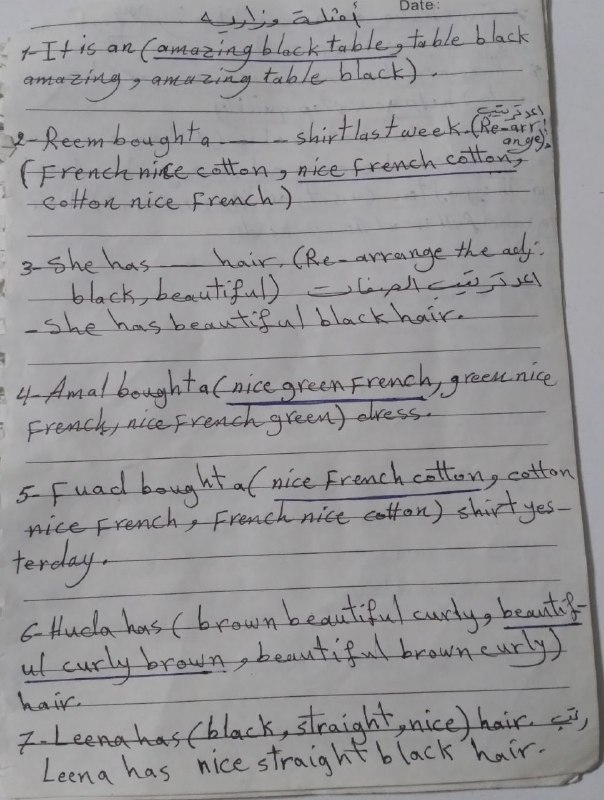 Date:
أمثلة وزارية
1- It is an (amazing black table, table black
amazing, amazing table black).
2- Reem bought a ...... shirt last week. (Re-arr ange). اعد ترتيب
(French nice cotton, nice French cotton,
cotton nice French)
3- She has ___ hair. (Re-arrange the adj.
black, beautiful) اعد ترتيب الصفات
- She has beautiful black hair.
4- Amal bought a (nice green French, green nice
French, nice French green) dress.
5- Fuad bought a (nice French cotton, cotton
nice French, French nice cotton) shirt yes-
terday.
6- Huda has (brown beautiful curly, beautif-
ul curly brown, beautiful brown curly)
hair.
7- Leena has (black, straight, nice) hair. رتب
Leena has nice straight black hair.